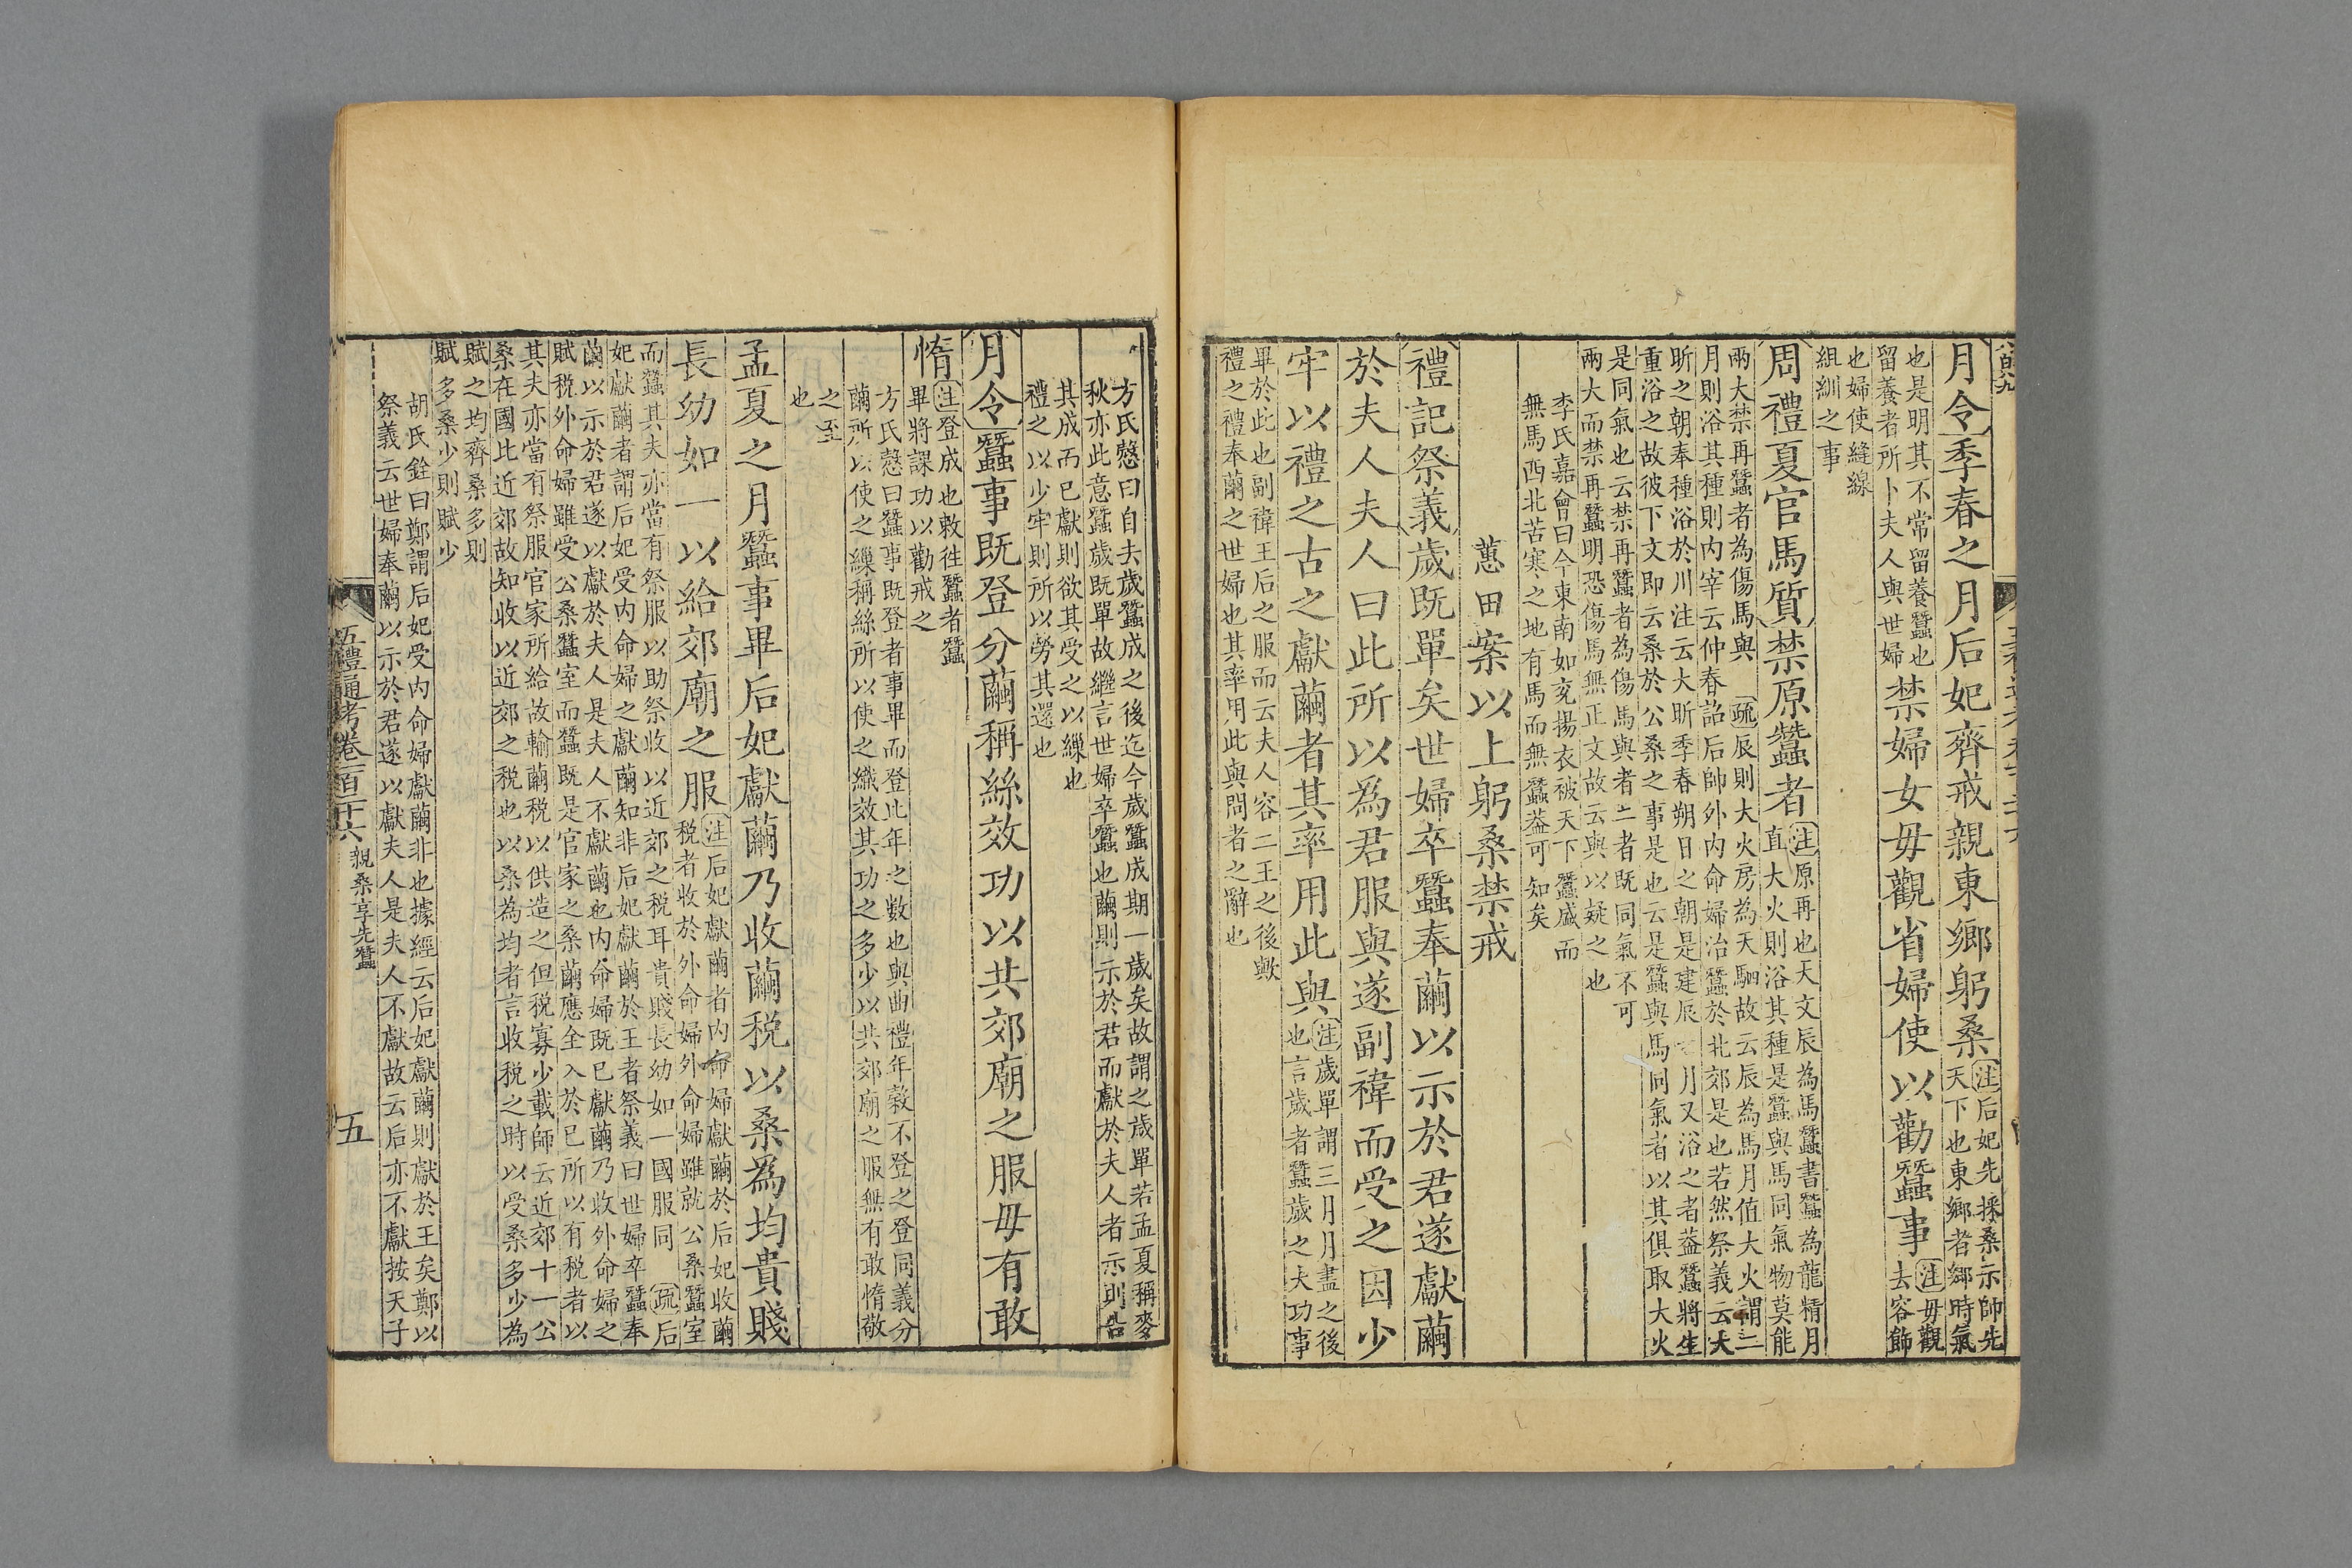 月令季春之月后妃齊戒親東鄉躬桑注后妃先採桑示帥先
天下也東鄉者鄉時氣
也是明其不常留養蠶也
留養者所卜夫人與世婦禁婦女毋觀省婦使以勸蠶事注毋觀
去容飾
也婦使縫線
組紃之事
周禮夏官馬質禁原蠶者注原再也天文辰為馬蠶書蠶為龍精月
直大火則浴其種是蠶與馬同氣物莫能
兩大禁再蠶者為傷馬與疏辰則大火房為天駟故云辰為馬月值大火謂二
月則浴其種則內宰云仲春詔后帥外內命婦治蠶於北郊是也若然祭義云大
昕之朝奉種浴於川注云大昕季春朔日之朝是建辰之月又浴之者蓋蠶將生
重浴之故彼下文即云桑於公桑之事是也云是蠶與馬同氣者以其俱取大火
是同氣也云禁再蠶者為傷馬與者二者既同氣不可
兩大而禁再蠶明恐傷馬無正文故云與以疑之也
李氏嘉會曰今東南如兗揚衣被天下蠶盛而
無馬西北苦寒之地有馬而無蠶益可知矣
蕙田案以上躬桑禁戒
禮記祭義歲既單矣世婦卒蠶奉繭以示於君遂獻繭
於夫人夫人曰此所以為君服與遂副褘而受之因少
牢以禮之古之獻繭者其率用此與注歲單謂三月月盡之後
也言歲者蠶歲之大功事
畢於此也副褘王后之服而云夫人容二王之後歟
禮之禮奉繭之世婦也其率用此與問者之辭也
方氏慤曰自去歲蠶成之後迄今歲蠶成期一歲矣故謂之歲單若孟夏稱麥
秋亦此意蠶歲既單故繼言世婦卒蠶也繭則示於君而獻於夫人者示則告
其成而已獻則欲其受之以繅也
禮之以少牢則所以勞其還也
月令蠶事既登分繭稱絲效功以共郊廟之服毋有敢
惰注登成也敕往蠶者蠶
畢將課功以勸戒之
方氏慤曰蠶事既登者事畢而登此年之數也與曲禮年穀不登之登同義分
繭所以使之繅稱絲所以使之織效其功之多少以共郊廟之服無有敢惰敬
之至
也
孟夏之月蠶事畢后妃獻繭乃收繭稅以桑為均貴賤
長幼如一以給郊廟之服注后妃獻繭者內命婦獻繭於后妃收繭
稅者收於外命婦外命婦雖就公桑蠶室
而蠶其夫亦當有祭服以助祭收以近郊之稅耳貴賤長幼如一國服同疏后
妃獻繭者謂后妃受內命婦之獻繭知非后妃獻繭於王者祭義曰世婦卒蠶奉
繭以示於君遂以獻於夫人是夫人不獻繭也內命婦既已獻繭乃收外命婦之
賦稅外命婦雖受公桑蠶室而蠶既是官家之桑繭應全入於己所以有稅者以
其夫亦當有祭服官家所給故輸繭稅以供造之但稅寡少載師云近郊十一公
桑在國比近郊故知收以近郊之稅也以桑為均者言收稅之時以受桑多少為
賦之均齊桑多則
賦多桑少則賦少
胡氏銓曰鄭謂后妃受內命婦獻繭非也據經云后妃獻繭則獻於王矣鄭以
祭義云世婦奉繭以示於君遂以獻夫人是夫人不獻故云后亦不獻按天子
五禮通考卷一百二十六 親桑享先蠶 五